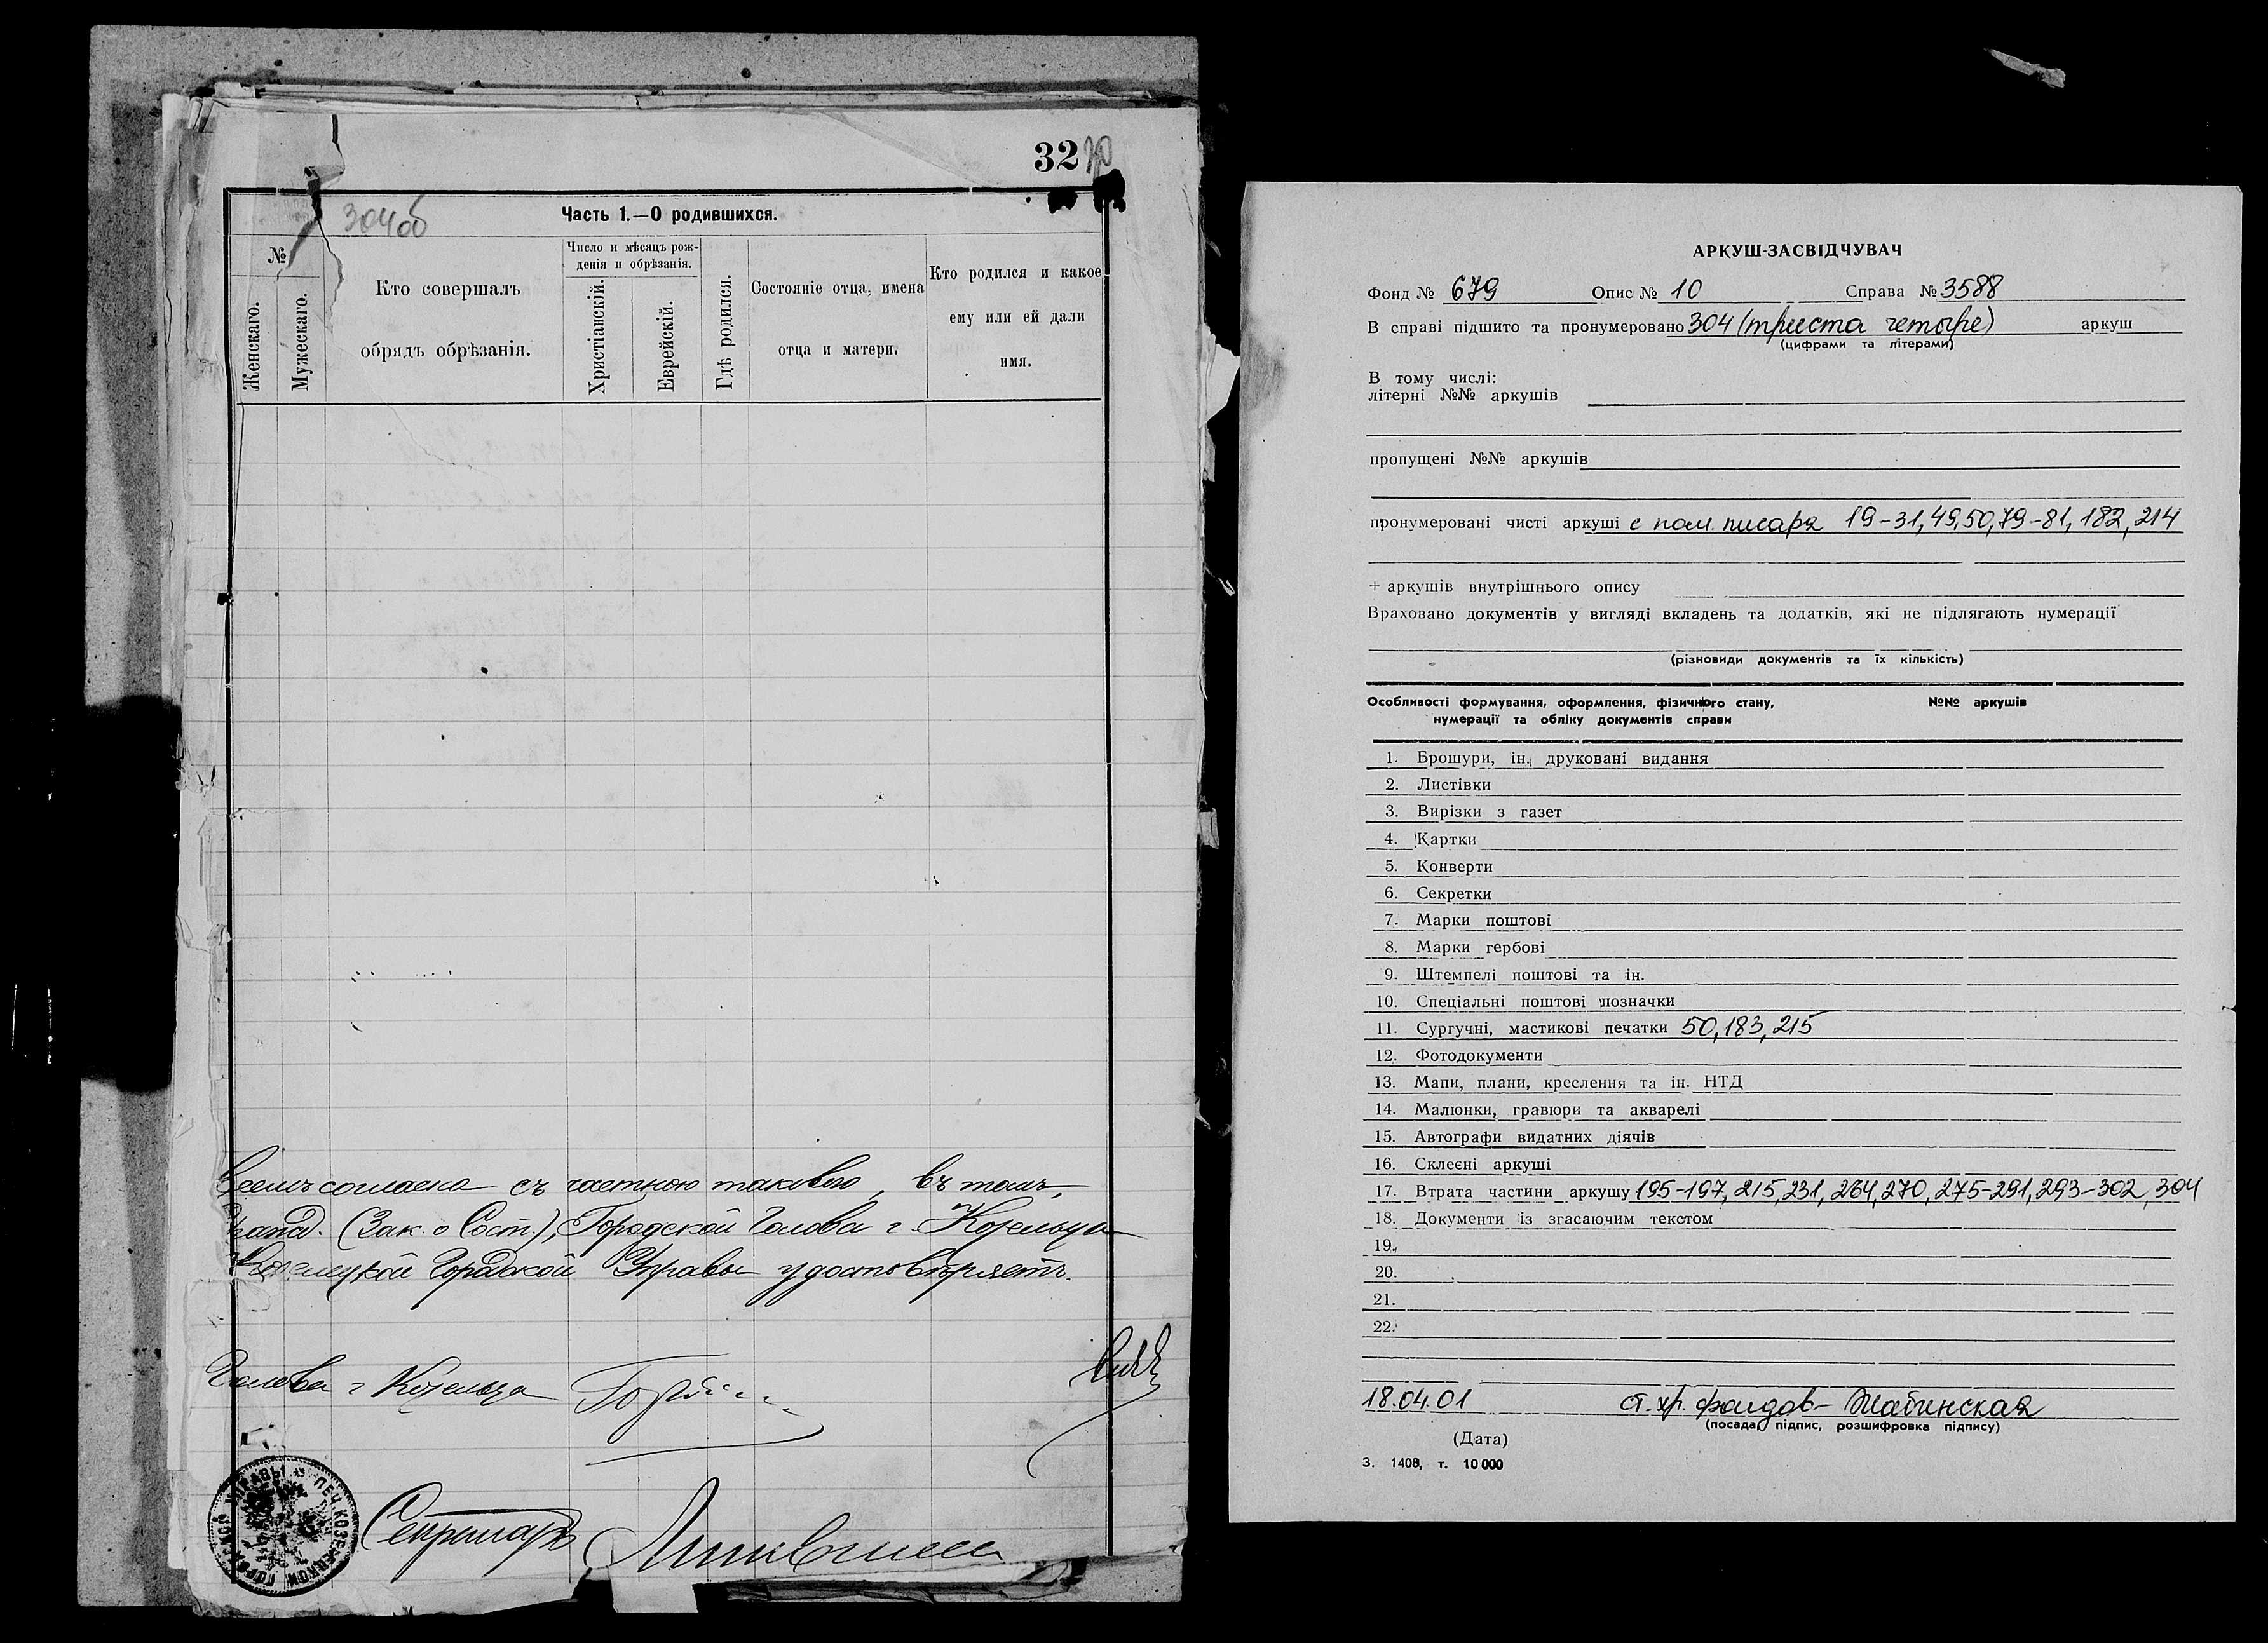 32
304об
Часть 1.—О родившихся.
№
Женскаго.
Мужескаго.
Кто совершалъ
обрядъ обрѣзанія.
Число и мѣсяцъ рож-
денія и обрѣзанія.
Христіанскій.
Еврейскій.
Гдѣ родился.
Состояніе отца, имена
отца и матери.
Кто родился и какое
ему или ей дали
имя.
съ частною таковою, въ томъ,
(Зак. о Сост.), Городской Голова г. Козельца
Городской Управы удостовѣряетъ.
Голова г. Козельца
Секретарь
АРКУШ-ЗАСВІДЧУВАЧ
Фонд № 679 Опис № 10 Справа № 3588
В справі підшито та пронумеровано 304 (триста четыре) аркуш
(цифрами та літерами)
В тому числі:
літерні №№ аркушів
пропущені №№ аркушів
пронумеровані чисті аркуші с пом. писаря 19-31, 49, 50, 79-81, 182, 214
+ аркушів внутрішнього опису
Враховано документів у вигляді вкладень та додатків, які не підлягають нумерації
(різновиди документів та їх кількість)
Особливості формування, оформлення, фізичного стану, №№ аркушів
нумерації та обліку документів справи
1. Брошури, ін. друковані видання
2. Листівки
3. Вирізки з газет
4. Картки
5. Конверти
6. Секретки
7. Марки поштові
8. Марки гербові
9. Штемпелі поштові та ін.
10. Спеціальні поштові позначки
11. Сургучні, мастикові печатки 50, 183, 215
12. Фотодокументи
13. Мапи, плани, креслення та ін. НТД
14. Малюнки, гравюри та акварелі
15. Автографи видатних діячів
16. Склеєні аркуші
17. Втрата частини аркушу 195-197, 215, 231, 264, 270, 275-291, 293-302, 304
18. Документи із згасаючим текстом
19.
20.
21.
22.
18.04.01 ст. хр. фондов-
(посада, підпис, розшифровка підпису)
(Дата)
З. 1408, т. 10 000